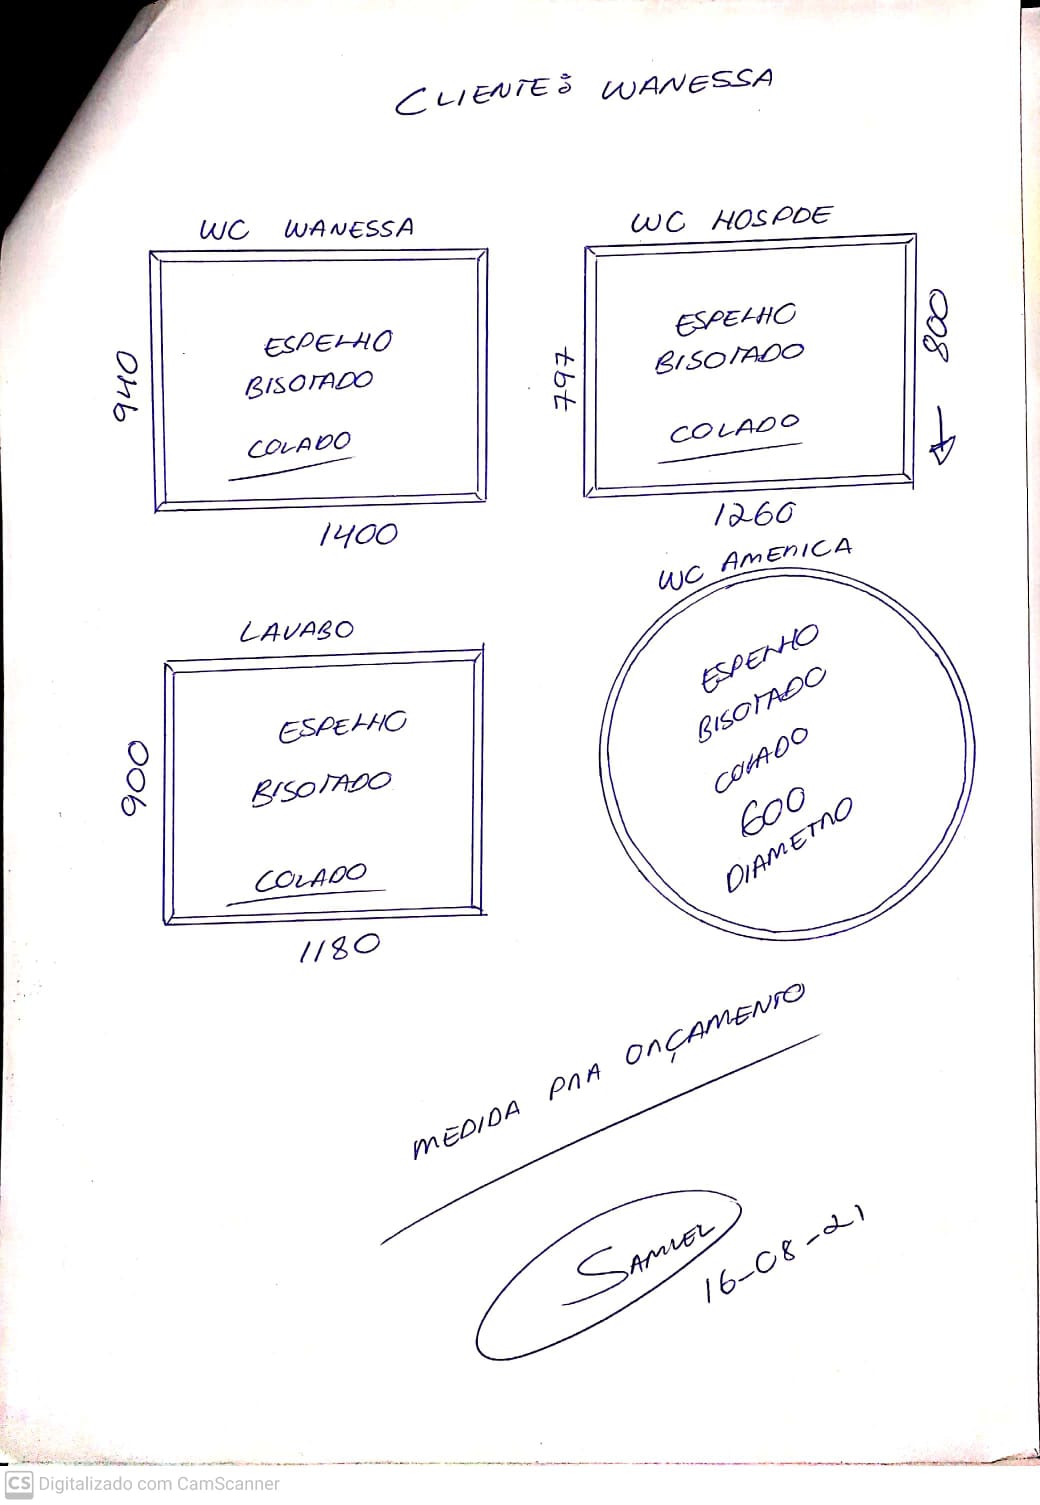 CLIENTE: WANESSA
WC WANESSA
940
ESPELHO
BISOTADO
COLADO
1400
WC HOSPDE
797
ESPELHO
BISOTADO
COLADO
800
1260
LAVABO
900
ESPELHO
BISOTADO
COLADO
1180
WC AMERICA
ESPELHO
BISOTADO
COLADO
600
DIAMETRO
MEDIDA PRA ORÇAMENTO
SAMUEL
16-08-21
CS Digitalizado com CamScanner